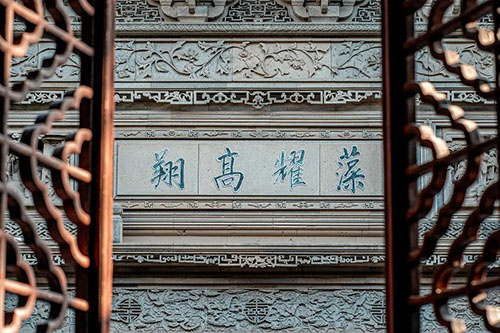 藻耀高翔